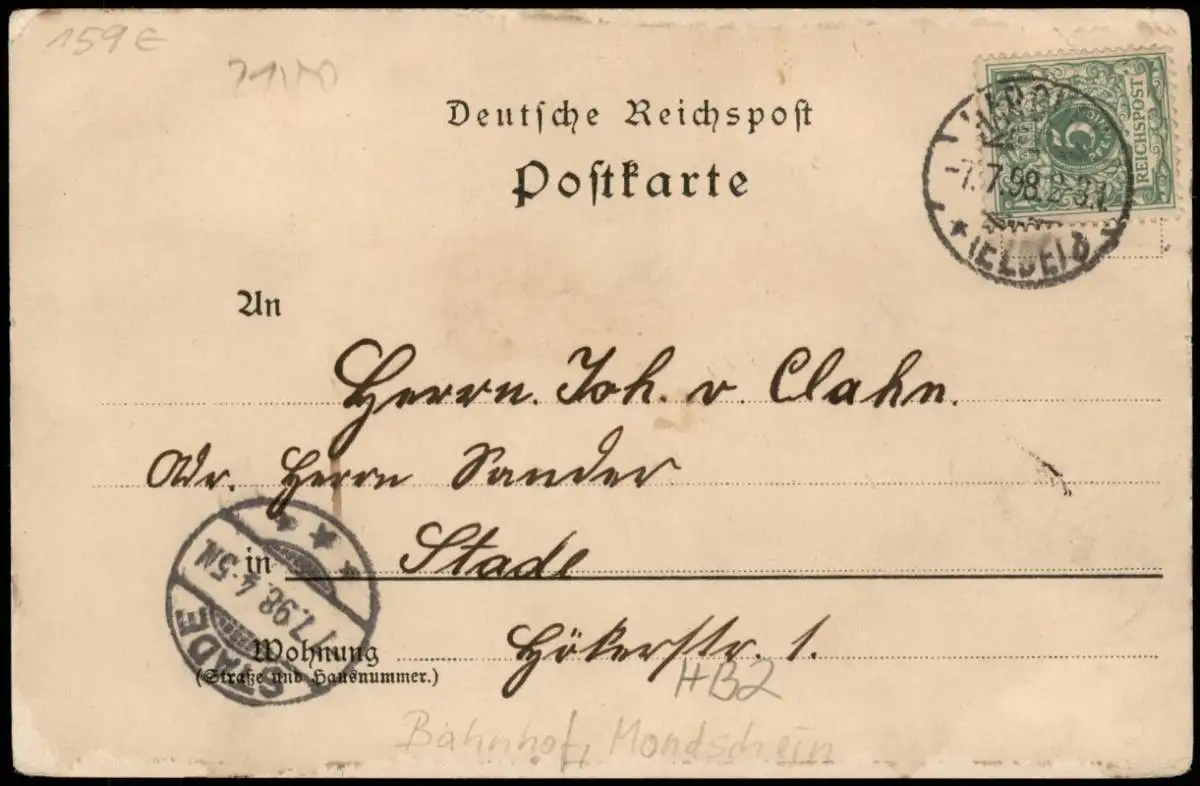 159 €
Deutsche Reichspost
Postkarte
REICHSPOST
5
7.98. 2-3N.
(ELBE)
An
Herrn. Joh. v. Clahn.
Adr. Herrn Sander
in Stade
Hökerstr. 1.
Wohnung
(Straße und Hausnummer.)
STADE
7.98. 4-5N
HB2
Bahnhof, Mondschein